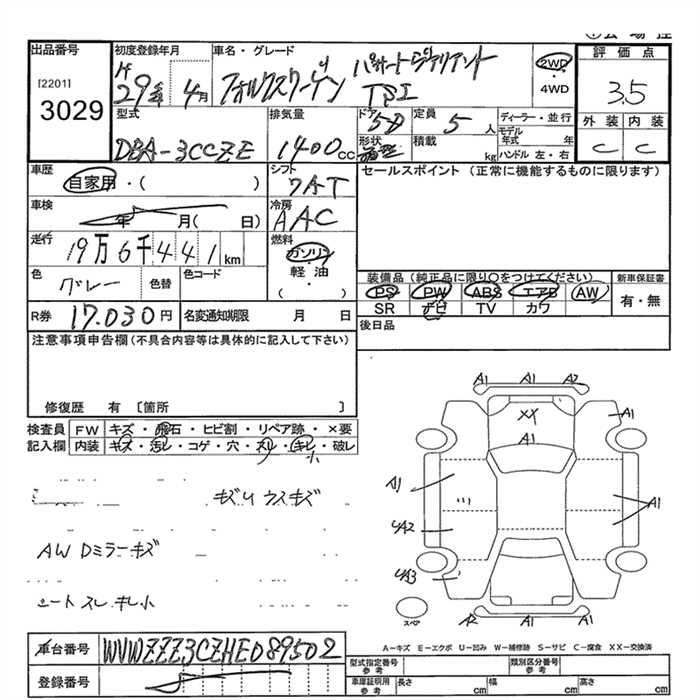 出品番号
[2201]
3029
初度登録年月
H
29年 4月
車名・グレード
フォルクスワーゲン パサートヴァリアント
TSI
2WD
・
4WD
評価点
3.5
外装 内装
C C
型式
DBA-3CCZE
排気量
1400cc
ドア
5D
形状
定員
5人
積載
kg
ディーラー・並行
モデル
年式 年
ハンドル 左・右
車歴
自家用・( )
シフト
7AT
セールスポイント (正常に機能するものに限ります)
車検
年 月( 日)
冷房
AAC
走行
19万6千441km
燃料
ガソリン
軽油
・
( )
色
グレー
色替
色コード
装備品 (純正品に限り○をつけてください)
PS PW ABS エアB AW
SR ナビ TV カワ
新車保証書
有・無
R券 17.030円
名変通知期限 月 日
後日品
注意事項申告欄(不具合内容等は具体的に記入して下さい)
修復歴 有 [箇所 ]
検査員 FW キズ・飛石・ヒビ割・リペア跡・×要
記入欄 内装 キズ・汚レ・コゲ・穴・スレ・キレ・破レ
小
キズリ ウスキズ
AW Dミラーキズ
シート スレ キレ小
A1 A1 A2 A1
XX A1
A1
A1
A1
UA2
UA3
A2 A1 A1
スペア
A-キズ E-エクボ U-凹み W-補修跡 S-サビ C-腐食 XX-交換済
車台番号 WVWZZZ3CZHE089502
登録番号
型式指定番号
参考
類別区分番号
参考
車庫証明用
参考
長さ cm 幅 cm 高さ cm